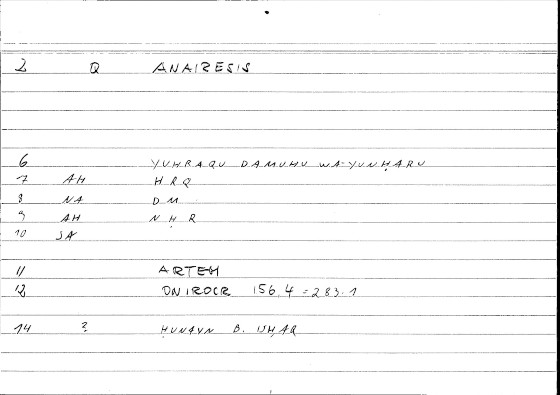 2 Q ANAIRESIS
6 YUHRAQU DAMUHU WA-YUNḤARU
7 AH HRQ
8 NA DM
9 AH NḤR
10 SA
11 ARTEM
12 ONIROCR 156,4 = 283.1
14 ? ḤUNAYN B. ISḤAQ